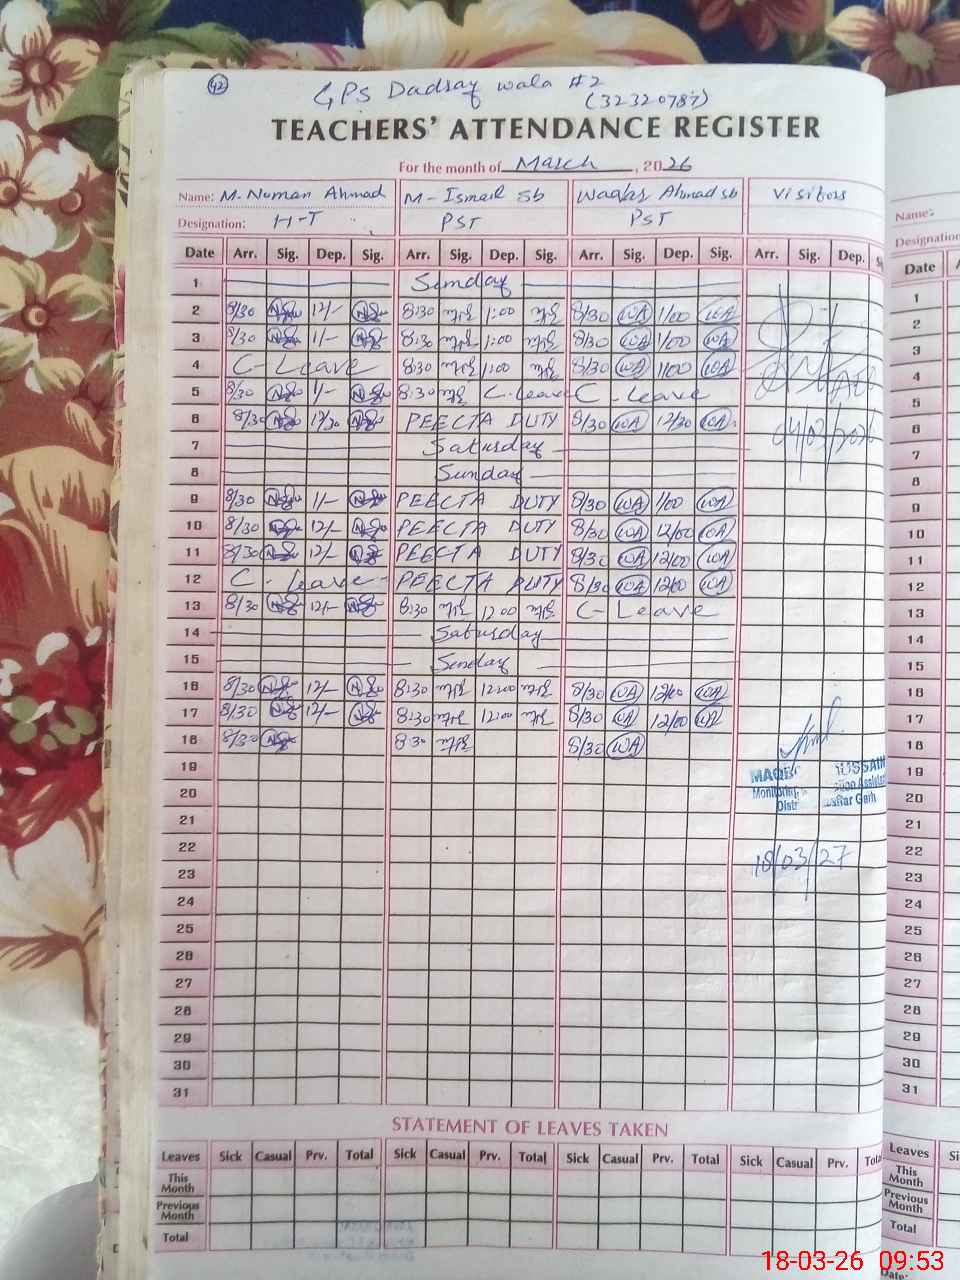 42
GPS Dadsay wala #2
(32320787)
TEACHERS' ATTENDANCE REGISTER
For the month of March, 2026
Name: M. Numan Ahmad M-Ismail Sb Waqas Ahmad sb Visitors
Designation: H-T PST PST
Date Arr. Sig. Dep. Sig. Arr. Sig. Dep. Sig. Arr. Sig. Dep. Sig. Arr. Sig. Dep.
1 Sunday
2 8/30 12/- 8:30 1:00 8/30 WA 1/00 WA
3 8/30 1/- 8:30 1:00 8/30 WA 1/00 WA
4 C-Leave 8:30 1:00 8/30 WA 1/00 WA
5 8/30 1/- 8:30 C.Leave C-Leave
6 8/30 12/30 PEECTA DUTY 8/30 WA 12/30 WA
04/03/2026
7 Saturday
8 Sunday
9 8/30 1/- PEECTA DUTY 8/30 WA 1/00 WA
10 8/30 12/- PEECTA DUTY 8/30 WA 12/00 WA
11 8/30 12/- PEECTA DUTY 8/30 WA 12/00 WA
12 C-Leave PEECTA DUTY 8/30 WA 12/00 WA
13 8/30 12/- 8:30 12:00 C-Leave
14 Saturday
15 Sunday
16 8/30 12/- 8:30 12:00 8/30 WA 12/00 WA
17 8/30 12/- 8:30 12:00 8/30 WA 12/00 WA
18 8/30 8:30 8/30 WA
19
20
21
22
18/03/27
23
24
25
26
27
28
29
30
31
STATEMENT OF LEAVES TAKEN
Leaves Sick Casual Prv. Total Sick Casual Prv. Total Sick Casual Prv. Total Sick Casual Prv. Total
This Month
Previous Month
Total
Name:
Designation
Date
1
2
3
4
5
6
7
8
9
10
11
12
13
14
15
16
17
18
19
20
21
22
23
24
25
26
27
28
29
30
31
Leaves
This Month
Previous Month
Total
Date:
18-03-26 09:53